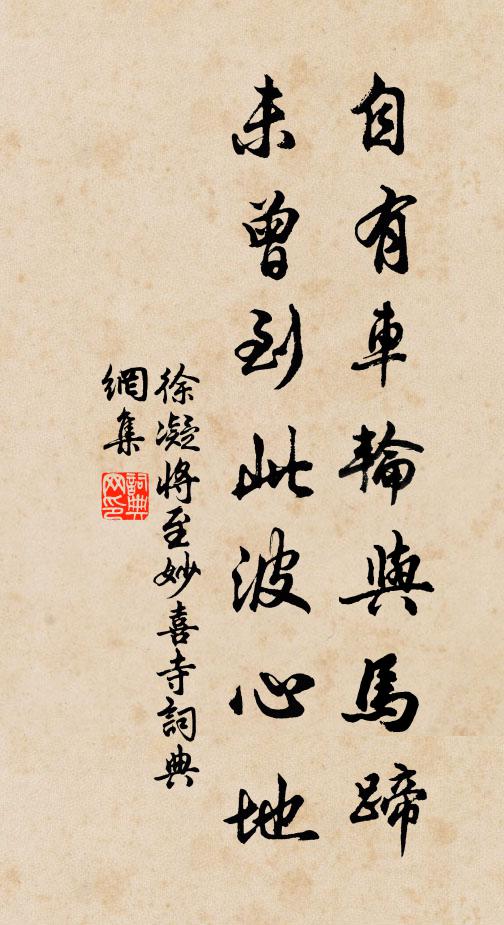 自有車輪與馬蹄
未曾到此波心地
徐凝將至妙喜寺詞典
網集
詞典
网印